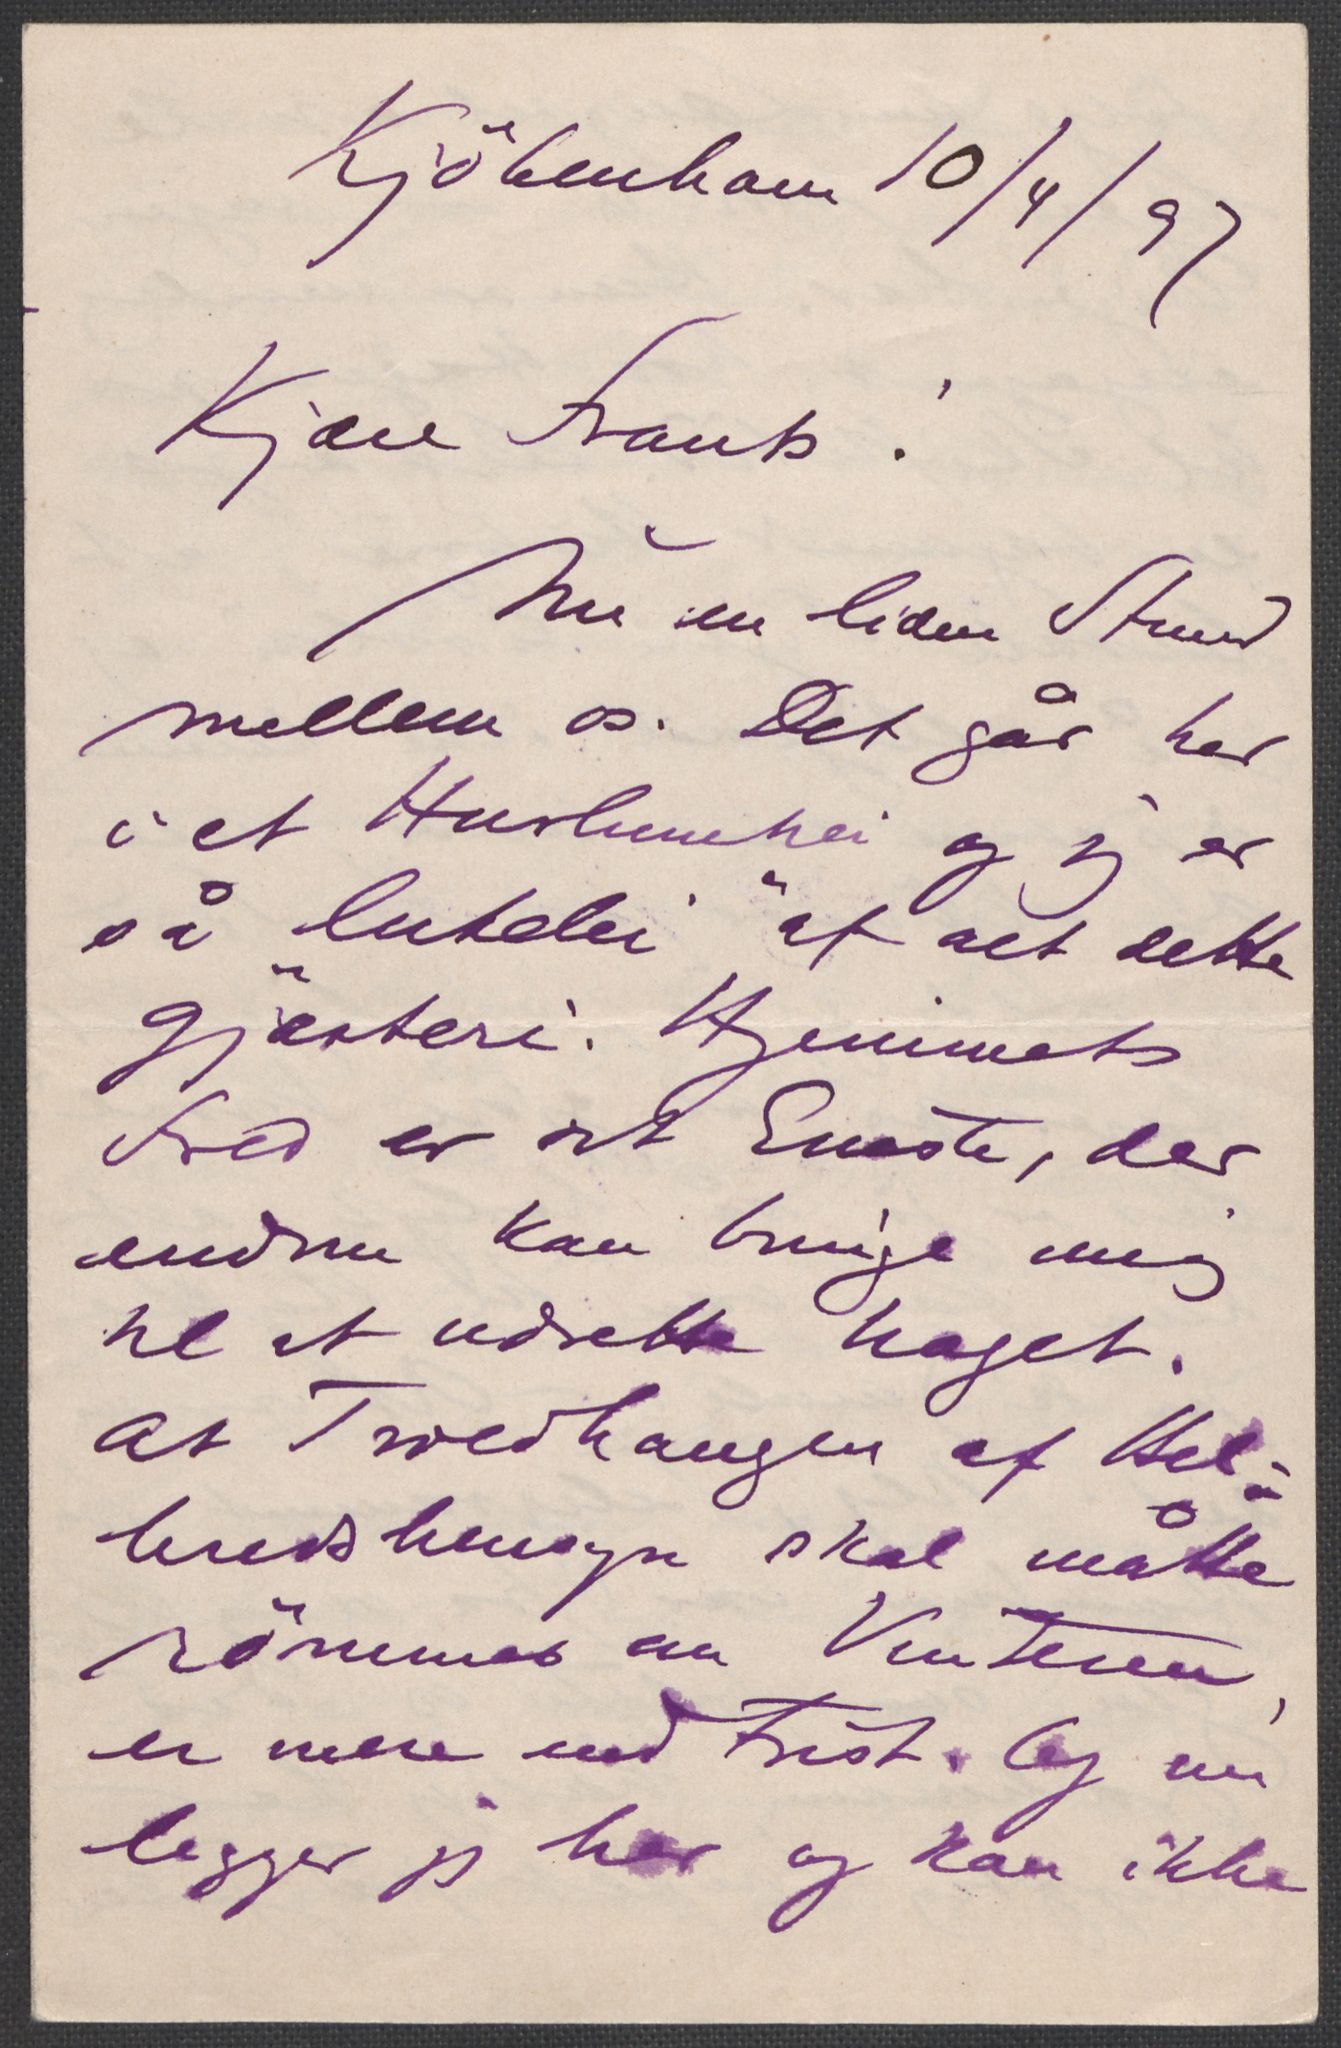 Kjöbenhavn 10/4/97
Kjære Frants!
Nu en liden Stund
mellem os. Det går her
i et Hurlumhei og jeg er
så lutdoven af alt dette
gjästeri. Hjemmets
Fred er det Eneste, der
endnu kan bringe mig
til at udrette noget.
At Troldhaugen af Hel-
bredshensyn skal måtte
römmes om Vinteren,
er mere end trist. Og nu
ligger jeg her og kan ikke